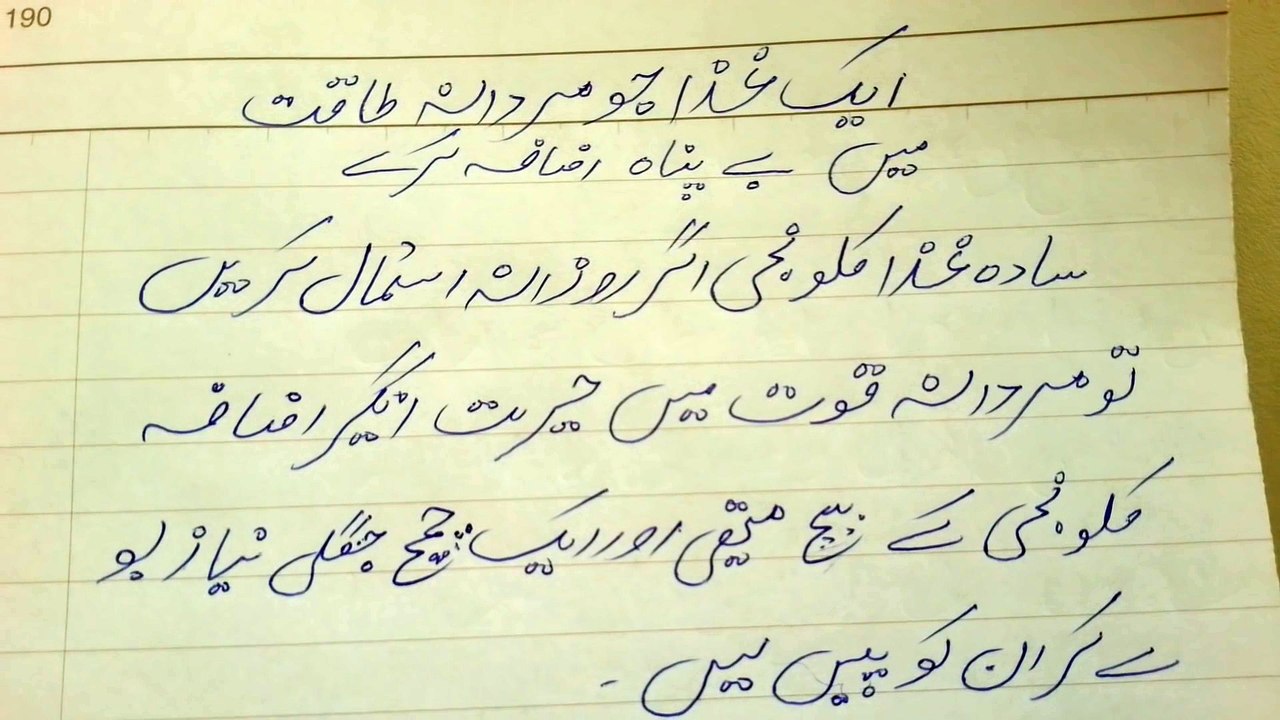 190
ایک غذا جو مردانہ طاقت
میں بے پناہ اضافہ کرے
سادہ غذا کلونجی اگر روزانہ استمال کریں
تو مردانہ قوت میں حیرت انگیز اضافہ
کلونجی کے بیج منقی اور ایک چمچ جنگلی پیاز لو
لے کر ان کو پیس لیں ۔